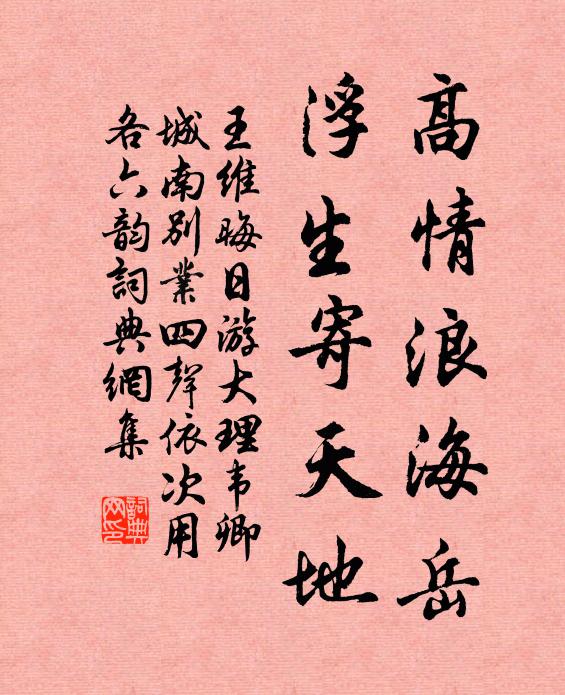 高情浪海岳
浮生寄天地
王维晦日游大理韦卿
城南别業四聲依次用
各六韵詞典網集
詞典網印